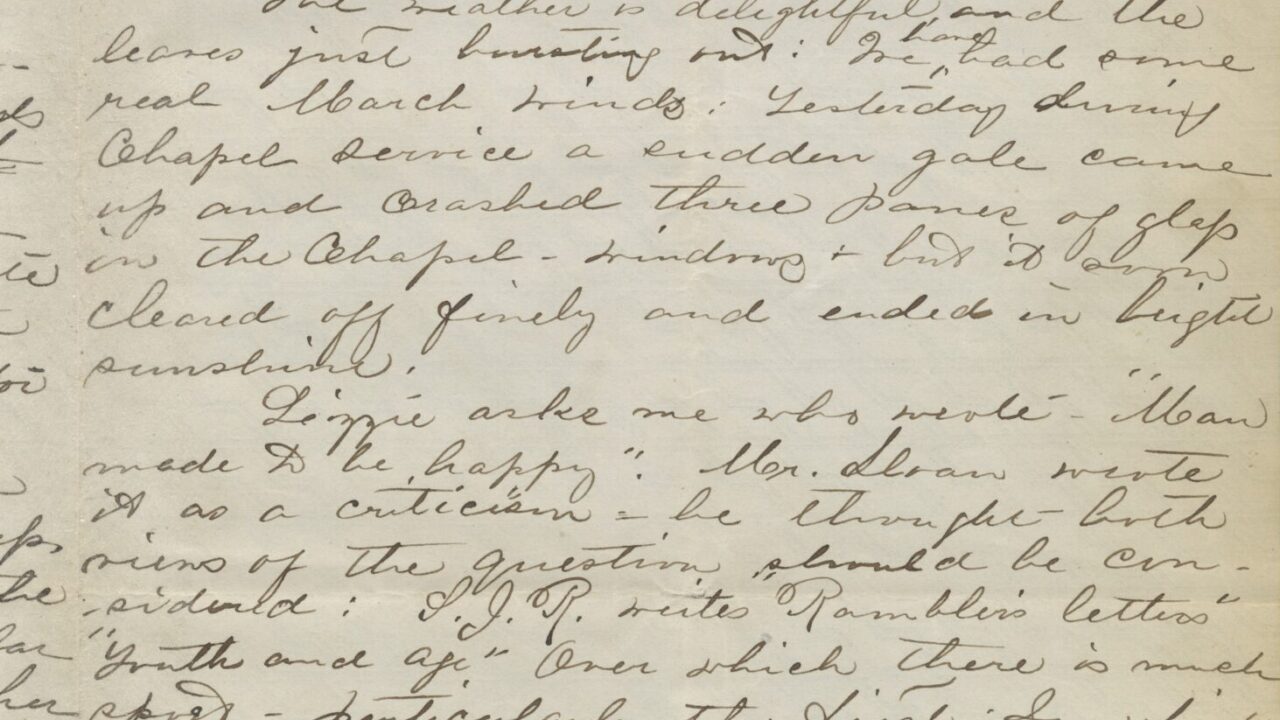 The weather is delightful, and the
leaves just bursting out: We have had some
real March winds: Yesterday during
Chapel service a sudden gale came
up and crashed three panes of glass
in the Chapel - windows + but it soon
cleared off finely and ended in bright
sunshine.
Lizzie asks me who wrote - "Man
made to be happy": Mr. Sloan wrote
it as a criticism = he thought both
views of the question should be con-
sidered: S.J.R. writes "Rambler's letters"
"Youth and age" Over which there is much
sport - particularly the